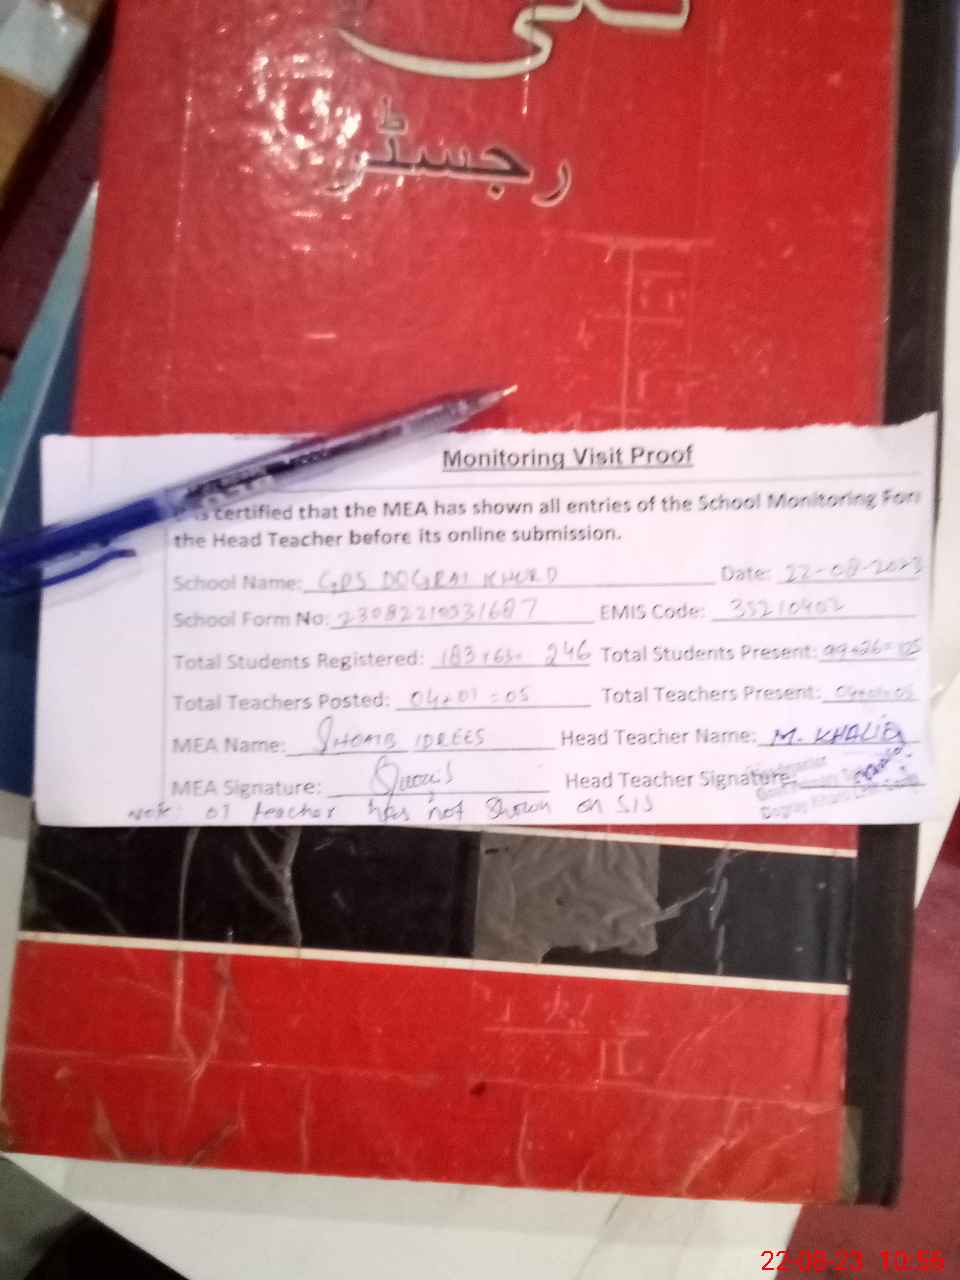 رجسٹر
Monitoring Visit Proof
is certified that the MEA has shown all entries of the School Monitoring For
the Head Teacher before its online submission.
School Name: GPS DOGRAI KHURD Date: 22-08-2023
School Form No: EMIS Code: 35210402
Total Students Registered: 183+63= 246 Total Students Present:
Total Teachers Posted: 04+01=05 Total Teachers Present: 04+01=05
MEA Name: SHOAIB IDREES Head Teacher Name: M. KHALID
MEA Signature: Head Teacher Signature:
Note: 01 teacher has not shown on SIS
22-08-23 10:56